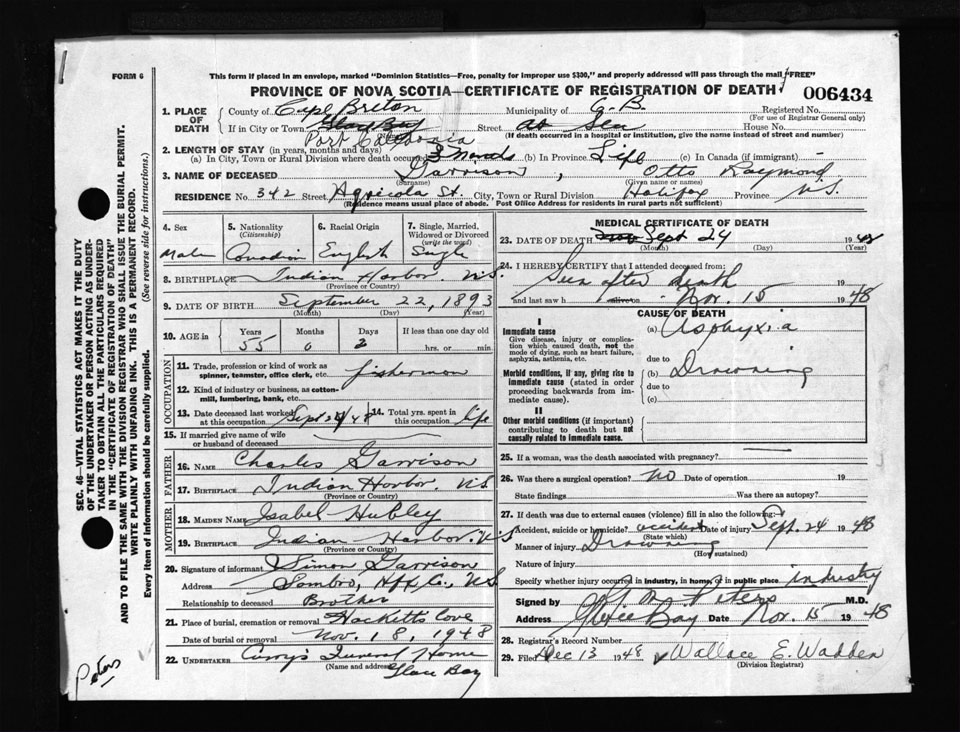 FORM 6
This form if placed in an envelope, marked "Dominion Statistics—Free, penalty for improper use $300," and properly addressed will pass through the mail "FREE"
PROVINCE OF NOVA SCOTIA—CERTIFICATE OF REGISTRATION OF DEATH
006434
1. PLACE OF DEATH
County of Cape Breton Municipality of G.B. Registered No.
(For use of Registrar General only)
If in City or Town Glace Bay Street at Sea House No.
(If death occurred in a hospital or institution, give the name instead of street and number)
Port Caledonia
2. LENGTH OF STAY (in years, months and days)
(a) In City, Town or Rural Division where death occurred 3 (b) In Province Life (c) In Canada (if immigrant)
3. NAME OF DECEASED Garrison, Otto Raymond
(Surname) (Given name or names)
RESIDENCE No. 342 Street Agricola St. City, Town or Rural Division Halifax Province N.S.
(Residence means usual place of abode. Post Office Address for residents in rural parts not sufficient)
4. Sex 5. Nationality (Citizenship) 6. Racial Origin 7. Single, Married, Widowed or Divorced (write the word)
Male Canadian English Single
8. BIRTHPLACE Indian Harbor N.S.
(Province or Country)
9. DATE OF BIRTH September 22, 1893
(Month) (Day) (Year)
10. AGE in Years Months Days If less than one day old
55 0 2 hrs. or min.
OCCUPATION
11. Trade, profession or kind of work as spinner, teamster, office clerk, etc. fisherman
12. Kind of industry or business, as cotton-mill, lumbering, bank, etc.
13. Date deceased last worked at this occupation Sept 24/48 14. Total yrs. spent in this occupation life
15. If married give name of wife or husband of deceased
FATHER
16. NAME Charles Garrison
17. BIRTHPLACE Indian Harbor. N.S
(Province or Country)
MOTHER
18. MAIDEN NAME Isabel Hubley
19. BIRTHPLACE Indian Harbor. N.S
(Province or Country)
20. Signature of informant Simon Garrison
Address Sambro, Hfx Co., N.S
Relationship to deceased Brother
21. Place of burial, cremation or removal Hacketts Cove
Date of burial or removal Nov. 18, 1948
22. UNDERTAKER Curry's Funeral Home
(Name and address) Glace Bay
MEDICAL CERTIFICATE OF DEATH
23. DATE OF DEATH Nov Sept 24 1948
(Month) (Day) (Year)
24. I HEREBY CERTIFY that I attended deceased from:
Seen after death
and last saw h alive on Nov. 15 1948
CAUSE OF DEATH
I
Immediate cause (a) Asphyxia
Give disease, injury or complication which caused death, not the mode of dying, such as heart failure, asphyxia, asthenia, etc.
due to
Morbid conditions, if any, giving rise to immediate cause (stated in order proceeding backwards from immediate cause). (b) Drowning
due to
(c)
II
Other morbid conditions (if important) contributing to death but not causally related to immediate cause.
25. If a woman, was the death associated with pregnancy?
26. Was there a surgical operation? No Date of operation 19
State findings Was there an autopsy?
27. If death was due to external causes (violence) fill in also the following:
Accident, suicide or homicide? accident Date of injury Sept. 24 1948
(State which)
Manner of injury Drowning
(How sustained)
Nature of injury
Specify whether injury occurred in industry, in home, or in public place industry
Signed by Peters M.D.
Address Glace Bay Date Nov. 15 1948
28. Registrar's Record Number
29. Filed Dec 13 1948 Wallace E. Wadden
(Division Registrar)
SEC. 46—VITAL STATISTICS ACT MAKES IT THE DUTY
OF THE UNDERTAKER OR PERSON ACTING AS UNDER-
TAKER TO OBTAIN ALL THE PARTICULARS REQUIRED
IN THE "CERTIFICATE OF REGISTRATION OF DEATH"
AND TO FILE THE SAME WITH THE DIVISION REGISTRAR WHO SHALL ISSUE THE BURIAL PERMIT.
WRITE PLAINLY WITH UNFADING INK. THIS IS A PERMANENT RECORD.
Every item of information should be carefully supplied. (See reverse side for instructions.)
Peters